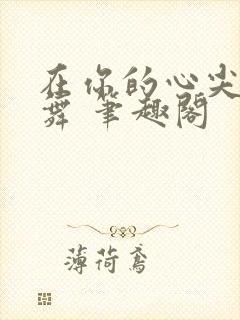 在你的心尖
舞 笔趣阁
薄荷鸢